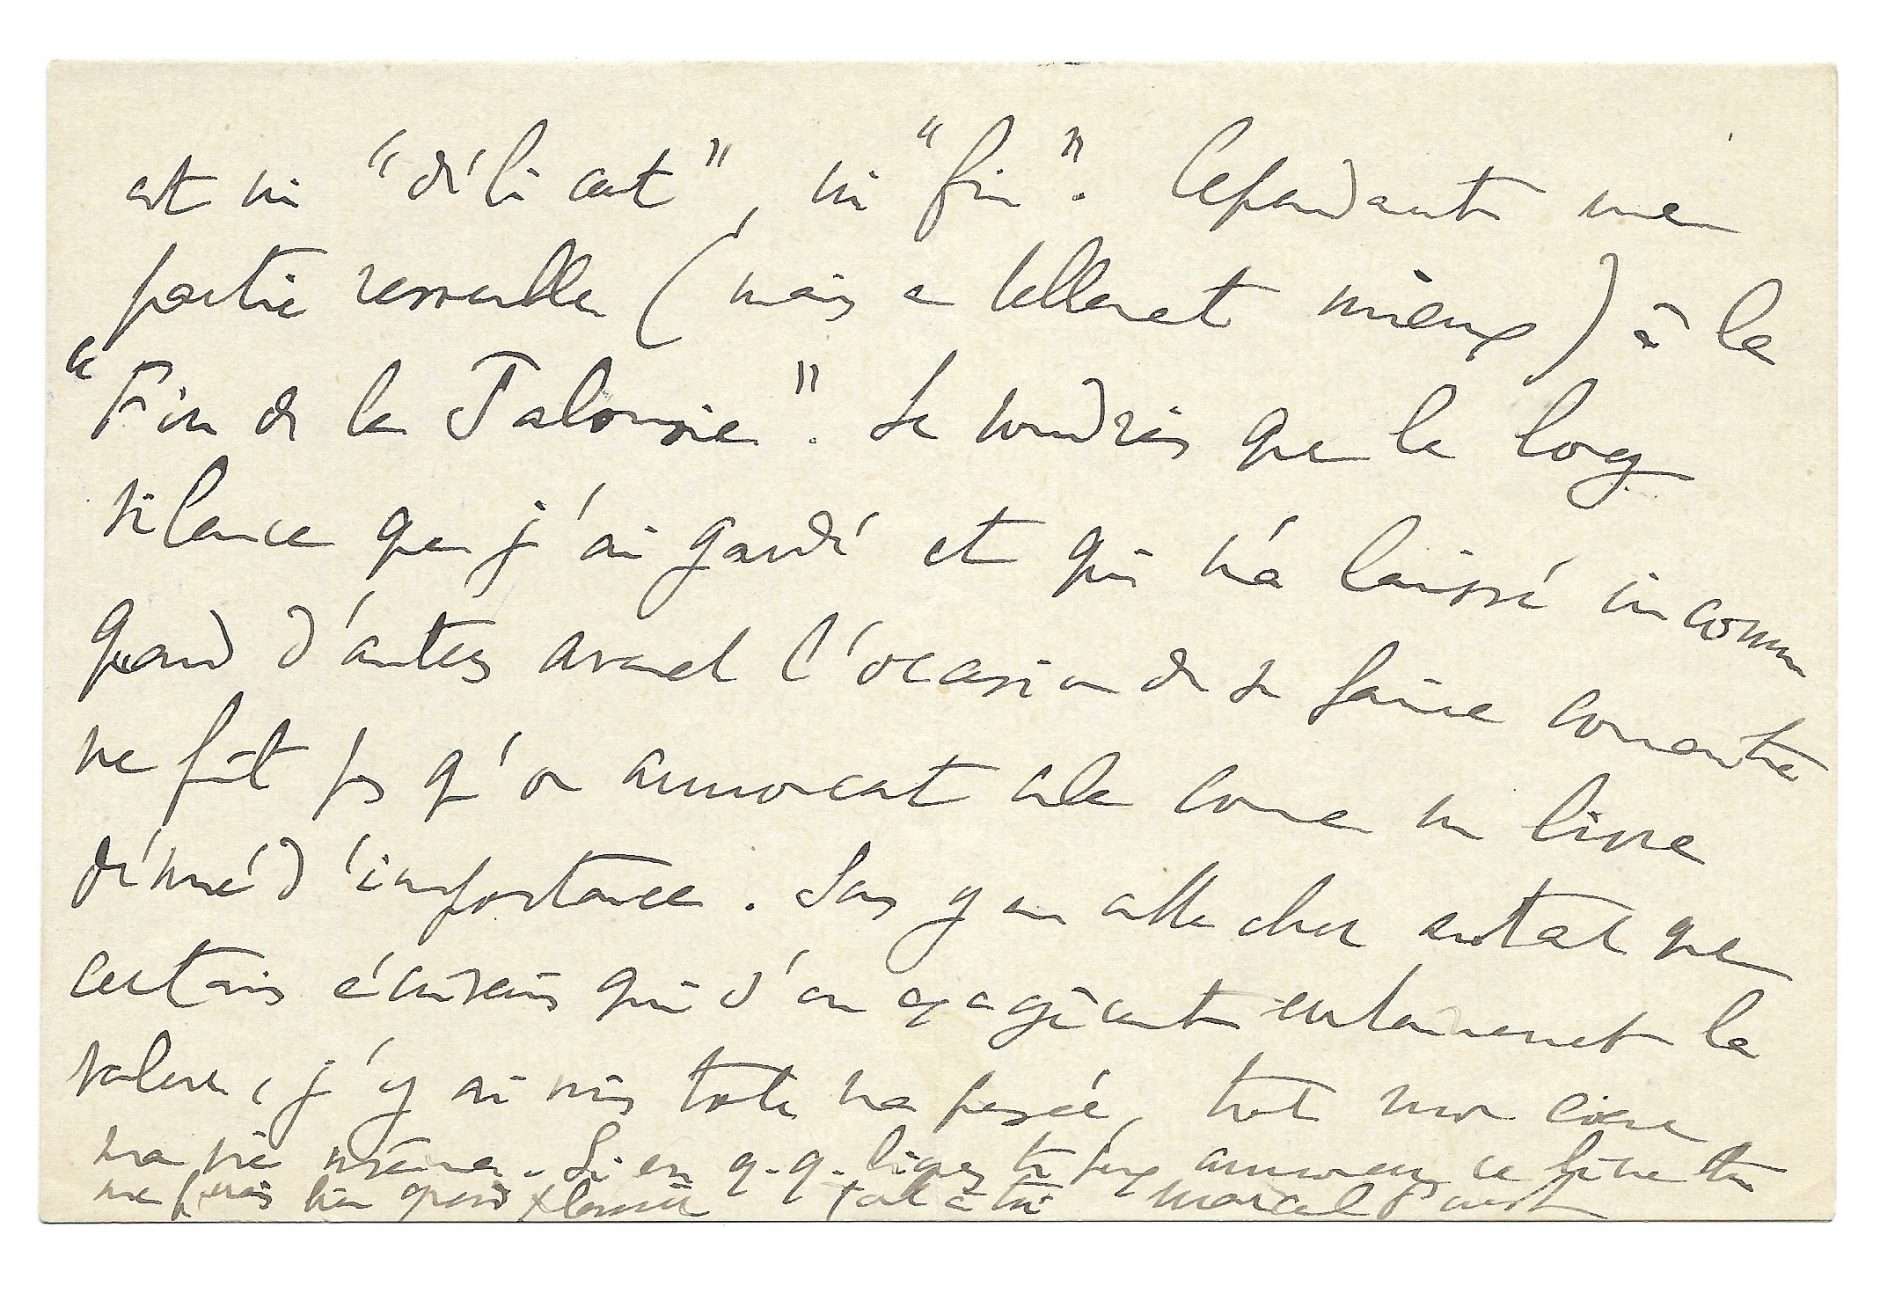 est ni "délicat", ni "fin". Cependant une
partie ressemble (mais a tellement mieux) à la
"Fin de la Jalousie". Je voudrais que le long
silence que j'ai gardé et qui m'a laissé inconnu
quand d'autres avaient l'occasion de se faire connaître
ne fît pas qu'on annonçat cela comme un livre
dénué d'importance. Sans y en attacher autant que
certains écrivains qui s'en exagèrent certainement la
valeur, j'y ai mis toute ma pensée, tout mon cœur
ma vie même. Si en q.q. lignes tu peux annoncer ce livre tu
me ferais bien grand plaisir Tout à toi Marcel Proust